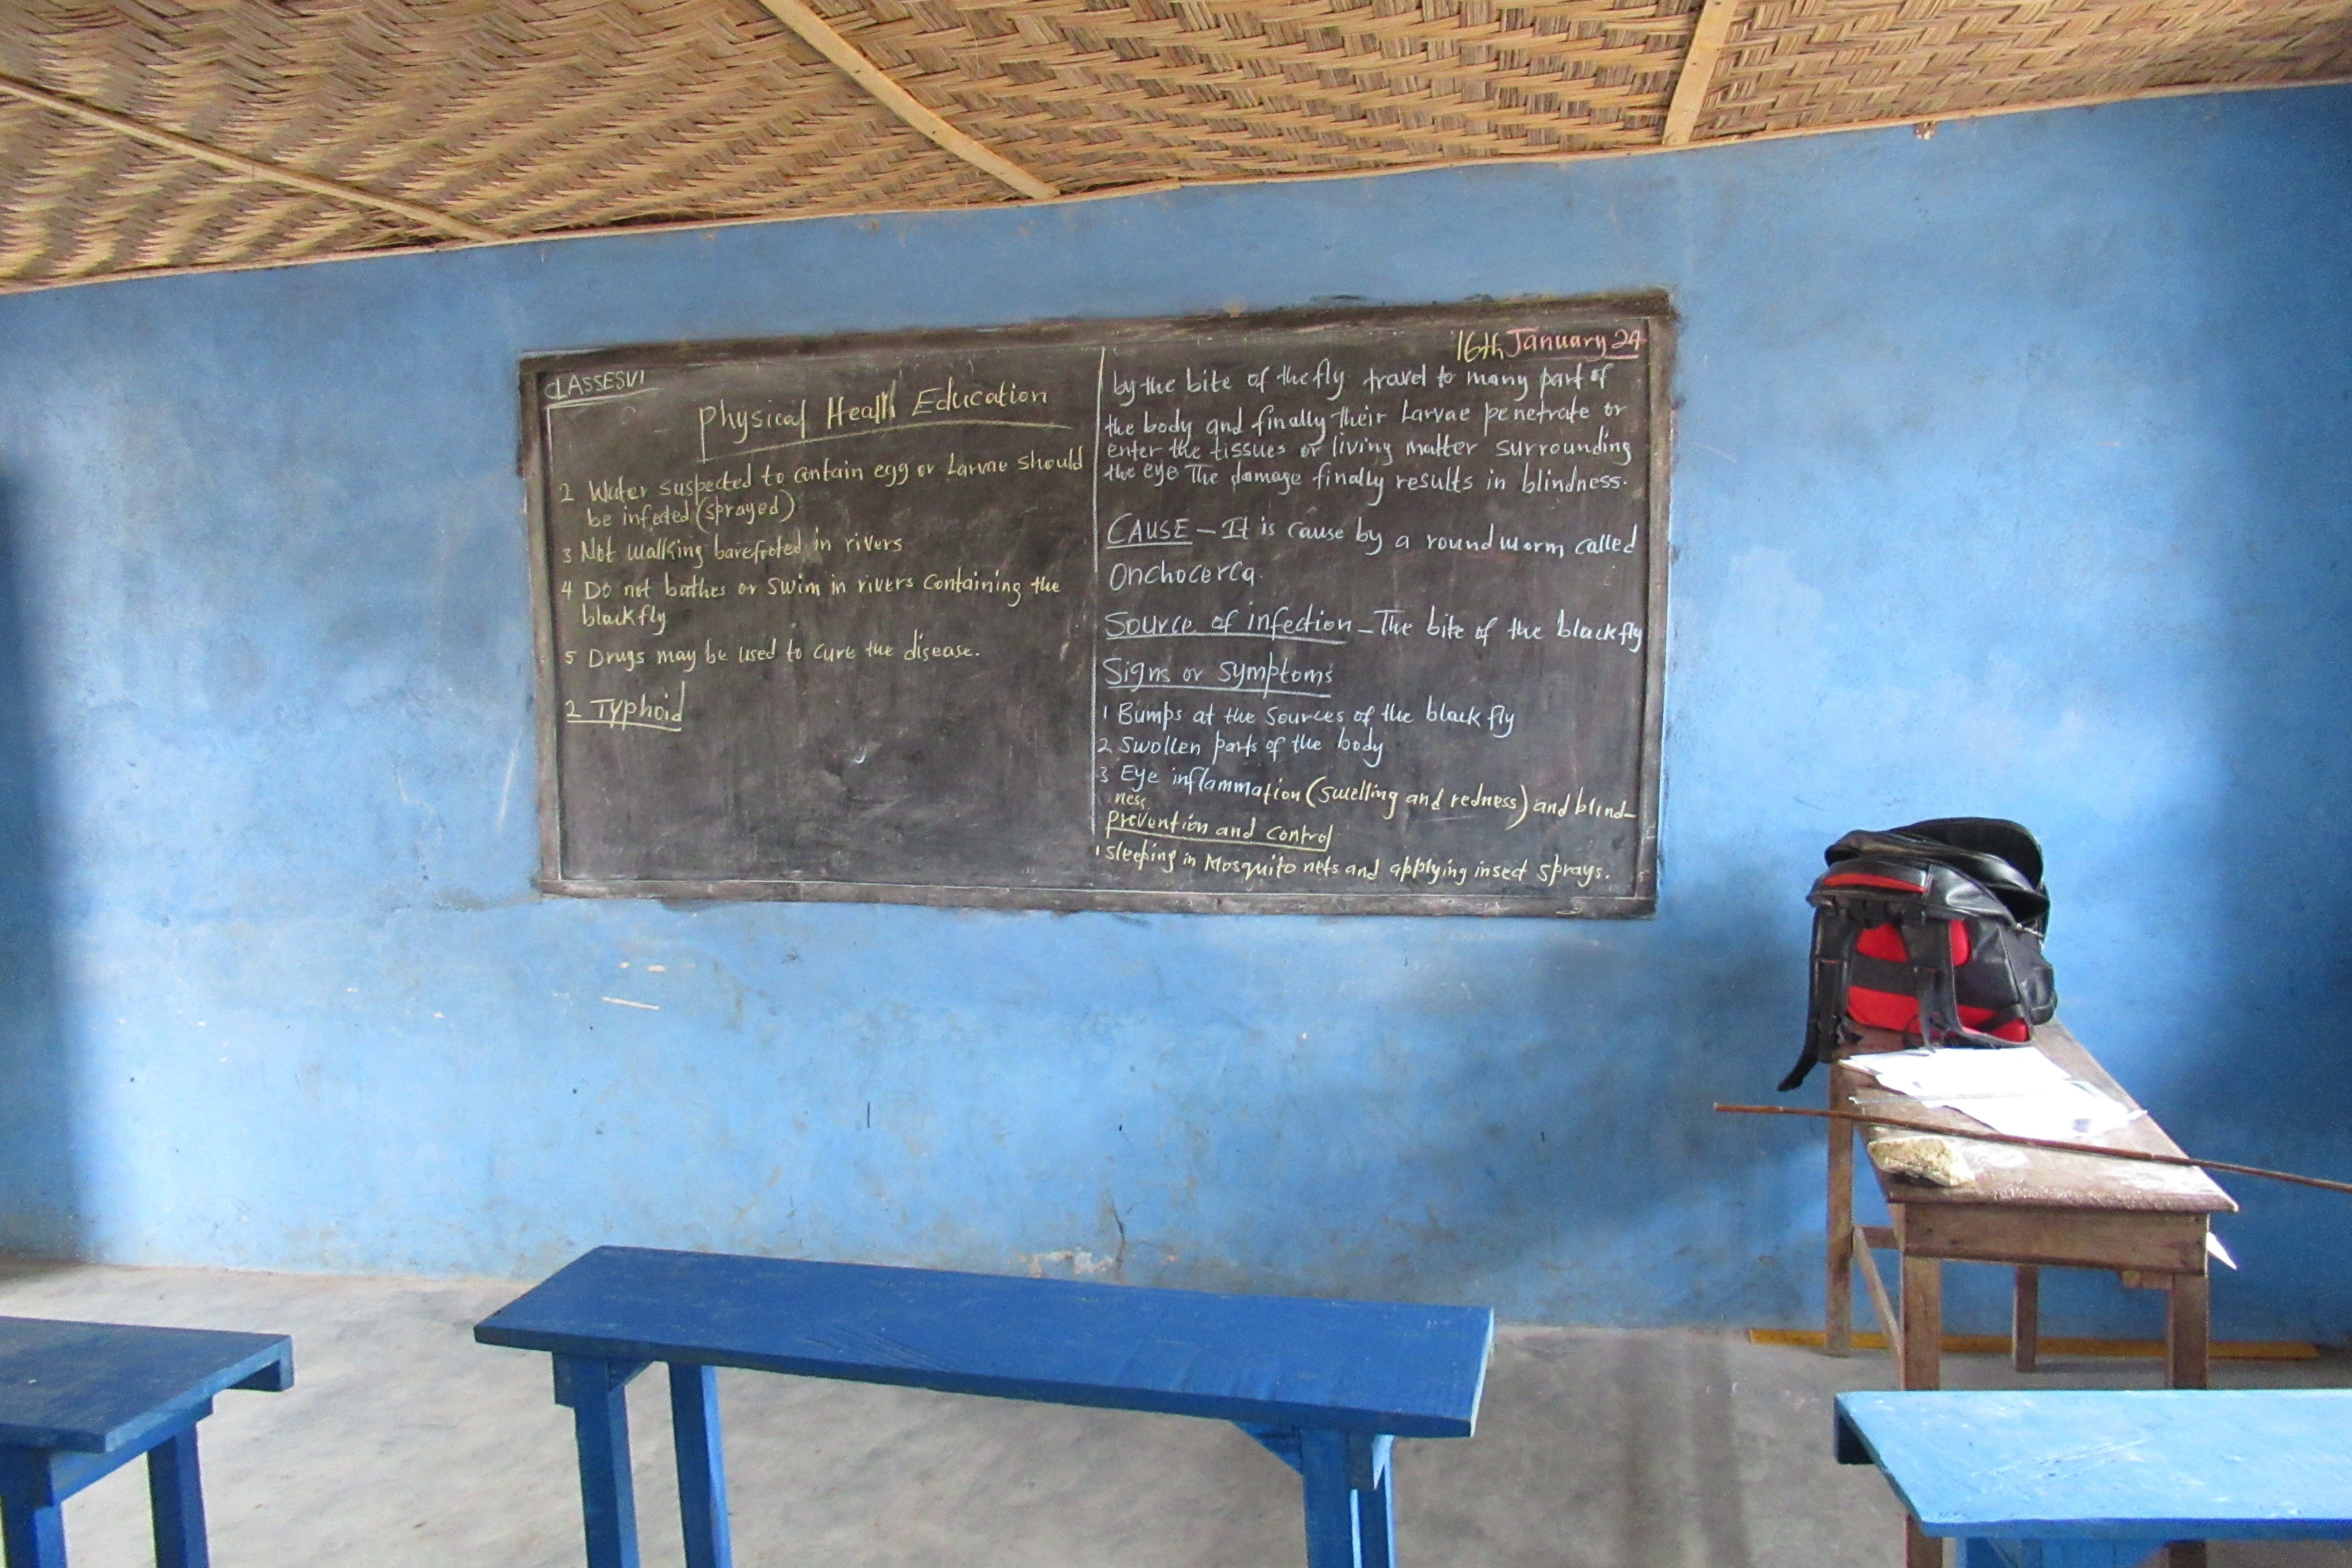 CLASSESVI
Physical Heall Education
2 Water suspected to contain egg or Larvae should
be infected (sprayed)
3 Not walking barefooted in rivers
4 Do not bathes or swim in rivers containing the
blackfly
5 Drugs may be used to cure the disease.
2 Typhoid
16th January 24
by the bite of the fly travel to many part of
the body and finally their Larvae penetrate or
enter the tissues or living matter surrounding
the eye The damage finally results in blindness.
CAUSE – It is cause by a roundworm called
Onchocerca.
Source of infection – The bite of the blackfly
Signs or symptoms
1 Bumps at the Sources of the black fly
2 Swollen parts of the body
3 Eye inflammation (swelling and redness) and blind-
ness
Prevention and control
1 Sleeping in Mosquito nets and applying insect sprays.